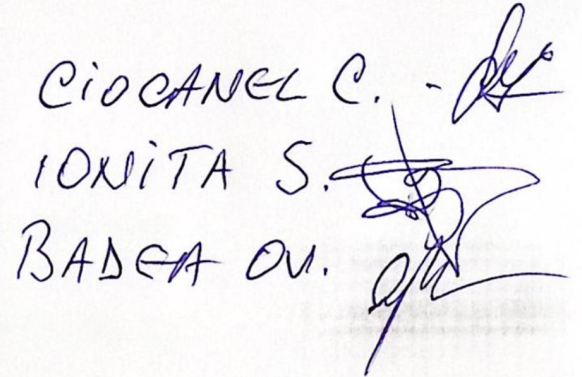 CIOCANEL C. -
IONITA S.
BADEA OV.